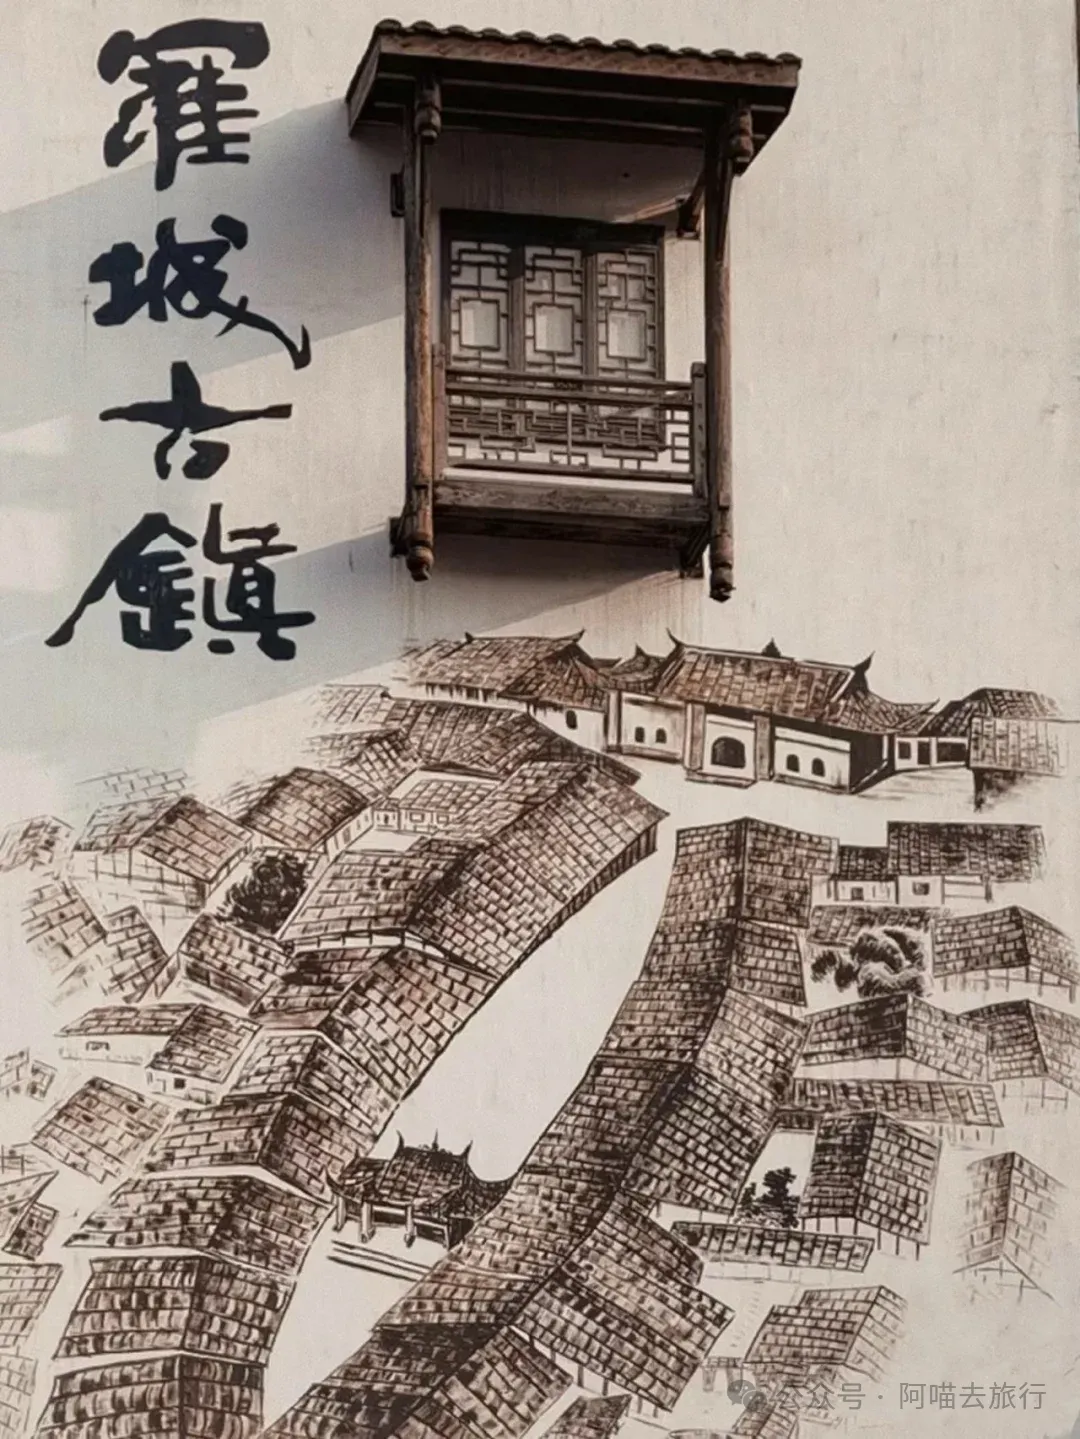 羅城古鎮
公众号 · 阿喵去旅行